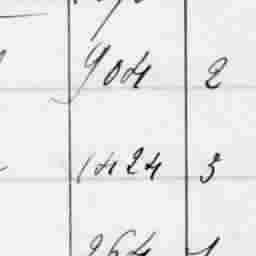 904 2
1424 3
264 1